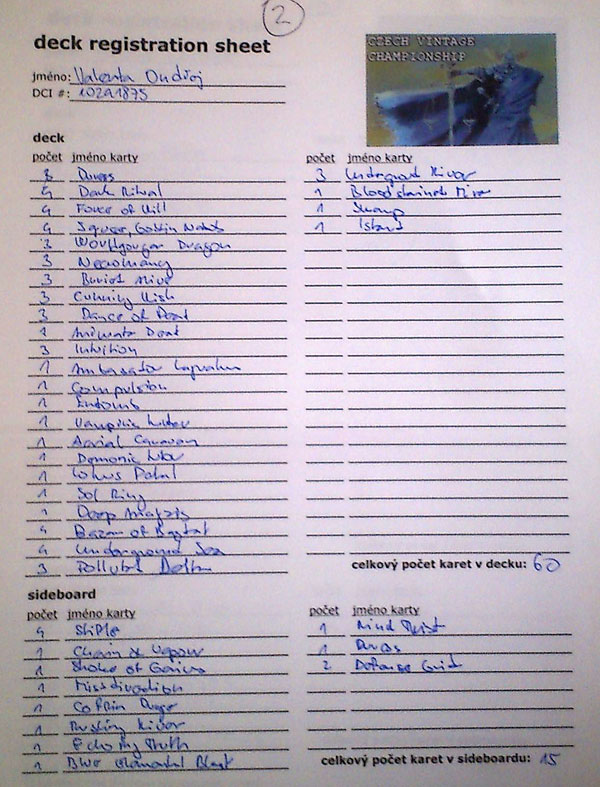 2
deck registration sheet
jméno: Valenta Ondřej
DCI #: 10291875
CZECH VINTAGE
CHAMPIONSHIP
deck
počet jméno karty
3 Duress
4 Dark Ritual
4 Force of Will
4 Squee, Goblin Nabob
3 Worldgorger Dragon
3 Necromancy
3 Buried Alive
3 Cunning Wish
3 Dance of Dead
1 Animate Dead
3 Intuition
1 Ambassador Laquatus
1 Compulsion
1 Entomb
1 Vampiric tutor
1 Aerial Caravan
1 Demonic tutor
1 Lotus Petal
1 Sol Ring
1 Deep Analysis
4 Bazar of Bagdat
4 Underground Sea
3 Polluted Delta
počet jméno karty
3 Underground River
1 Bloodstained Mire
1 Swamp
1 Island
celkový počet karet v decku: 60
sideboard
počet jméno karty
4 Stifle
1 Chain of Vapour
1 Stroke of Genius
1 Missdirection
1 Coffin Purge
1 Rushing River
1 Echoing Truth
1 Blue Elemental Blast
počet jméno karty
1 Mind Twist
1 Duress
2 Defense Grid
celkový počet karet v sideboardu: 15